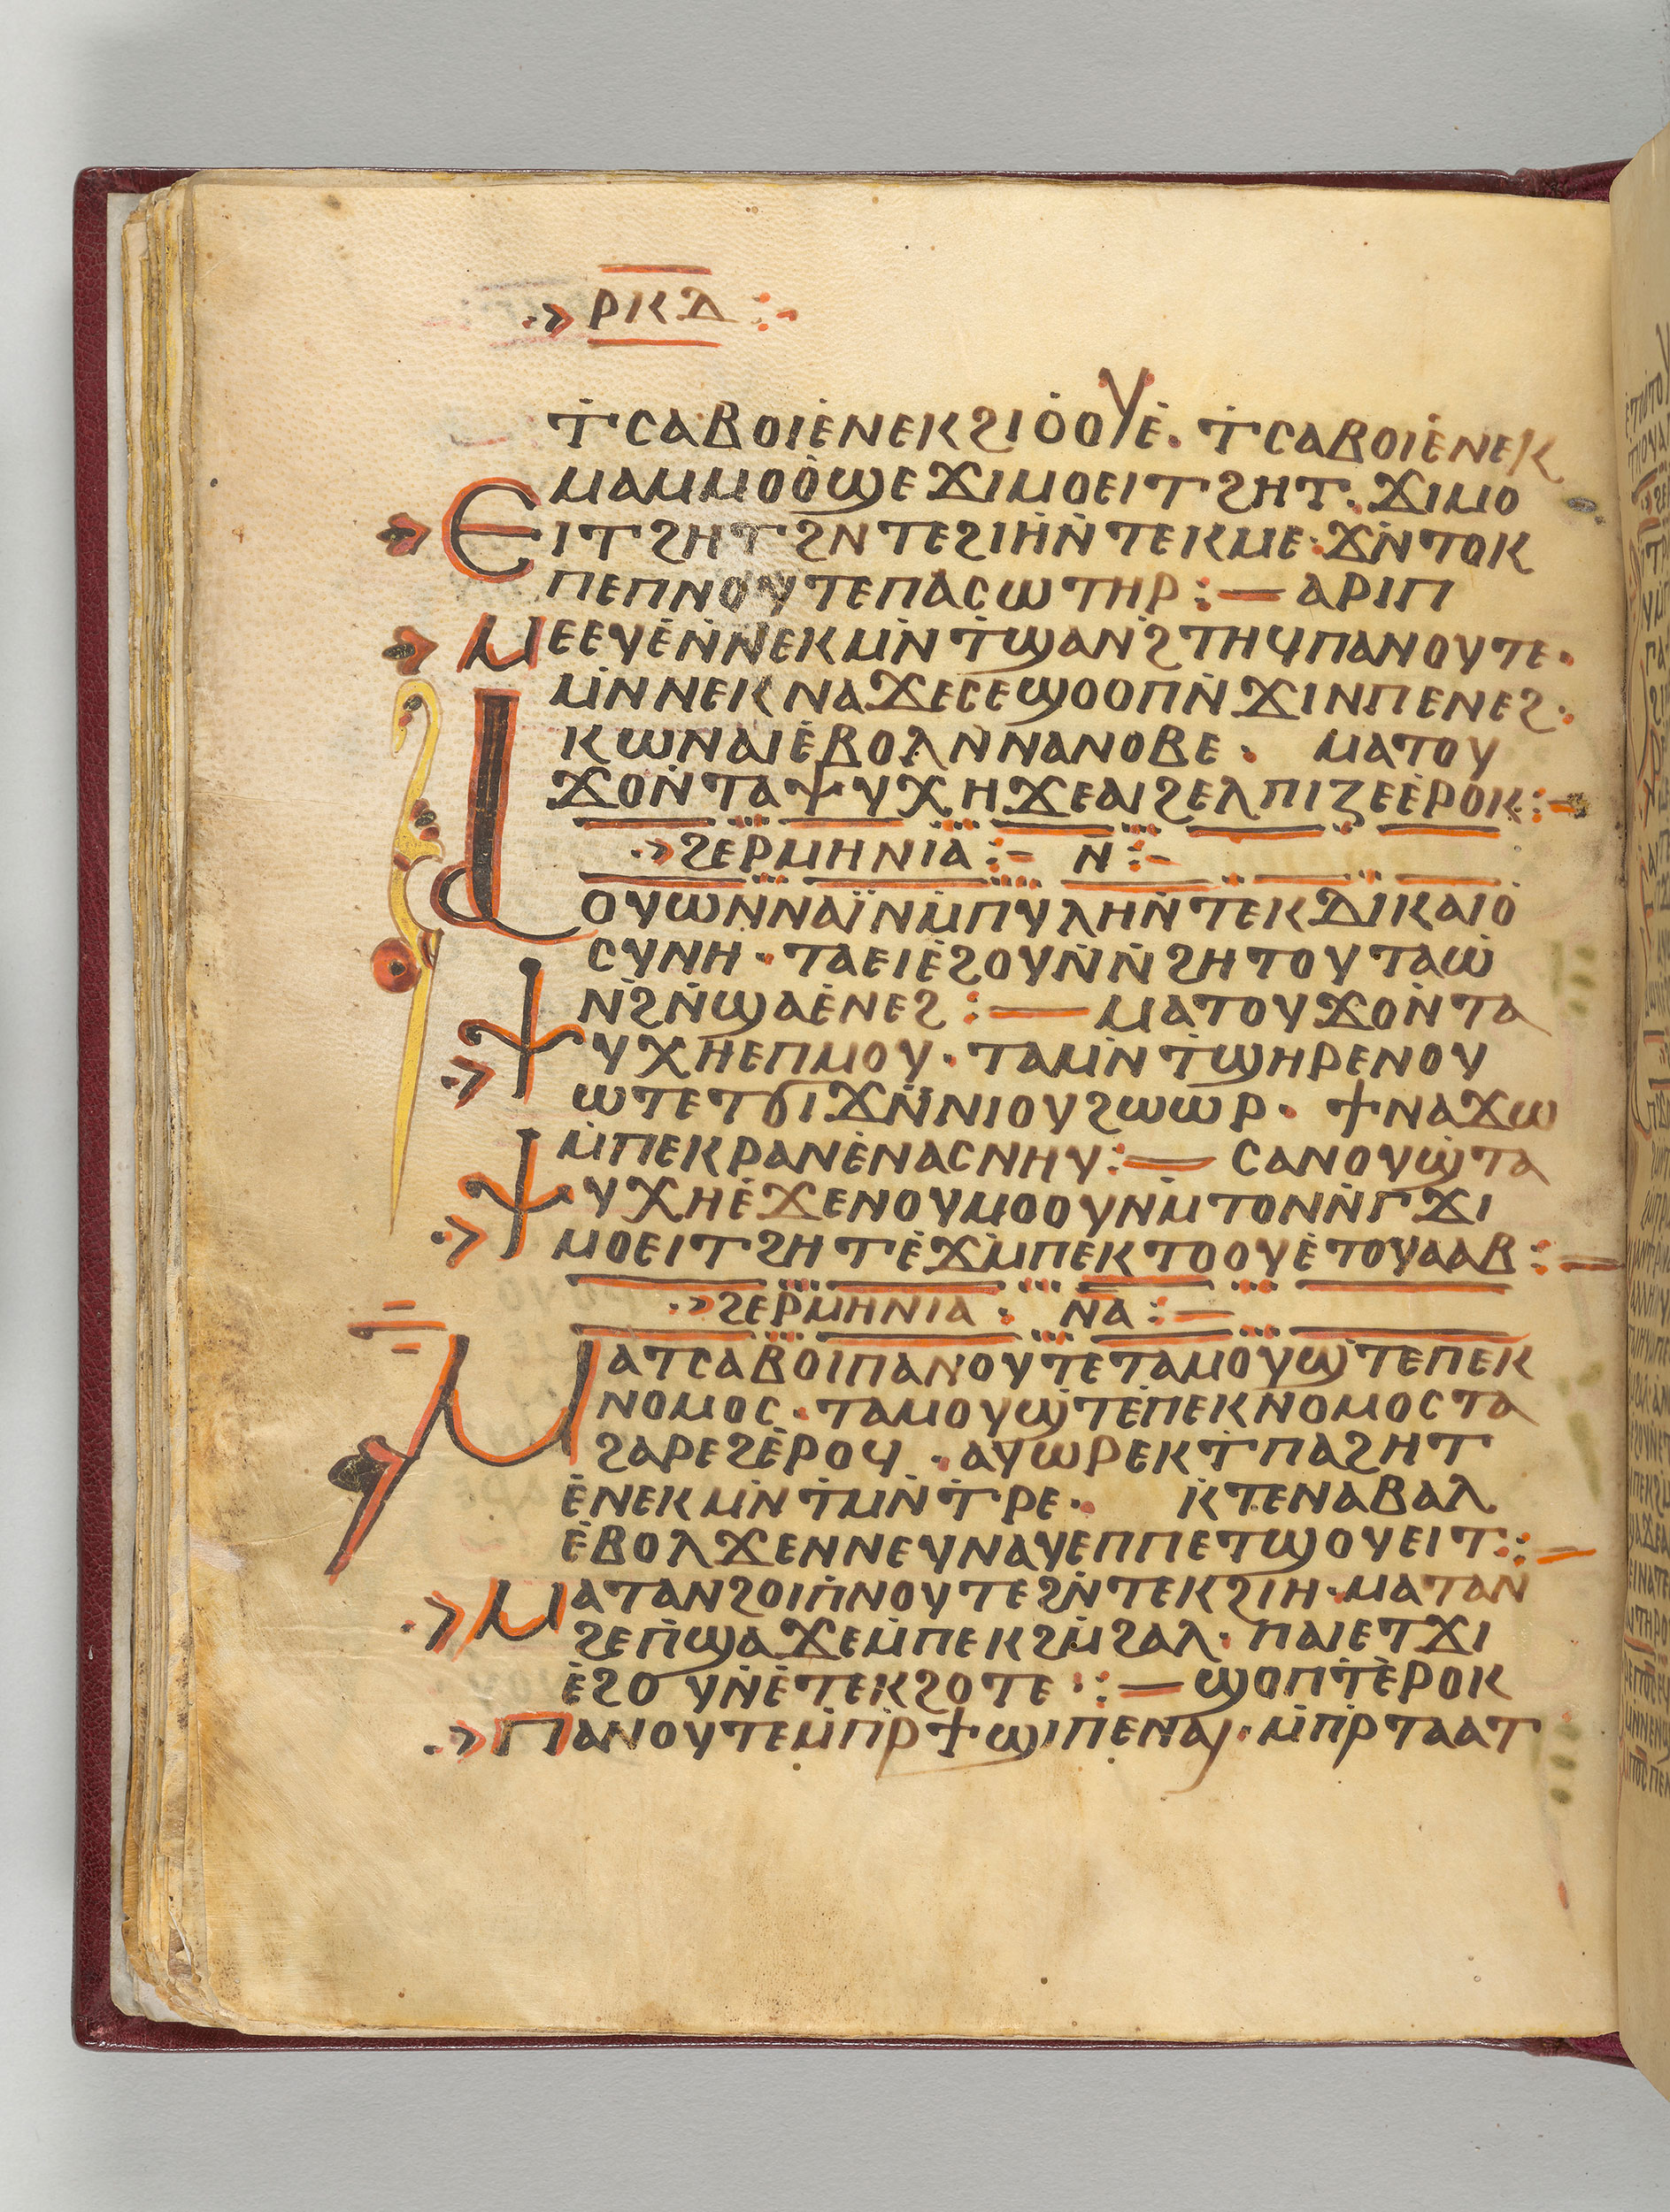 ⲣⲕⲇ
ⲧ̇ⲥⲁⲃⲟⲓⲉ̇ⲛⲉⲕϩⲓⲟ̇ⲟⲩⲉ̇. ⲧ̇ⲥⲁⲃⲟⲓⲉ̇ⲛⲉⲕ
ⲙⲁⲙⲙⲟⲟ̇ϣⲉϫⲓⲙⲟⲉⲓⲧϩⲏⲧ. ϫⲓⲙⲟ
ⲉⲓⲧϩⲏⲧϩⲛⲧⲉϩⲓⲏ̇ⲛ̇ⲧⲉⲕⲙⲉ· ϫⲛ̇ⲧⲟⲕ
ⲡⲉⲡⲛⲟⲩⲧⲉⲡⲁⲥⲱⲧⲏⲣ :— ⲁⲣⲓⲡ
ⲙⲉⲉⲩⲉ̇ⲛ̇ⲛⲉⲕⲙⲛ̇ⲧ̇ϣⲁⲛϩ̇ⲧⲏϥⲡⲁⲛⲟⲩⲧⲉ·
ⲙⲛ̇ⲛⲉⲕⲛⲁϫⲉⲥⲉϣⲟⲟⲡⲛ̇ϫⲓⲛⲡⲉⲛⲉϩ·
ⲕⲱⲛⲁⲓⲉ̇ⲃⲟⲗⲛ̇ⲛⲁⲛⲟⲃⲉ· ⲙⲁⲧⲟⲩ
ϫⲟⲛ̇ⲧⲁⲯⲩⲭⲏϫⲉⲁⲓϩⲉⲗⲡⲓⲍⲉⲉ̇ⲣⲟⲕ :—
ϩⲉⲣⲙⲏⲛⲓⲁ :— ⲛ :—
ⲁⲟⲩⲱⲛ̇ⲛⲁⲓ̈ⲛⲙ̇ⲡⲩⲗⲏⲛ̇ⲧⲉⲕⲇⲓⲕⲁⲓⲟ
ⲥⲩⲛⲏ· ⲧⲁⲉⲓⲉ̇ϩⲟⲩⲛ̇ⲛ̇ϩⲏⲧⲟⲩⲧⲁⲱ̇
ⲛϩ̇ⲛ̇ϣⲁⲉ̇ⲛⲉϩ :— ⲙⲁⲧⲟⲩϫⲟⲛ̇ⲧⲁ
ⲯⲩⲭⲏⲉⲡⲙⲟⲩ· ⲧⲁⲙⲛ̇ⲧ̇ϣⲏⲣⲉⲛⲟⲩ
ⲱⲧⲉⲧϭⲓϫⲛ̇ⲛⲓⲟⲩϩⲱⲱⲣ· ϯⲛⲁϫⲱ
ⲙ̇ⲡⲉⲕⲣⲁⲛⲉ̇ⲛⲁⲥⲛⲏⲩ :— ⲥⲁⲛⲟⲩϣ̇ⲧⲁ
ⲯⲩⲭⲏⲉ̇ϫⲉⲛⲟⲩⲙⲟⲟⲩⲛⲙ̇ⲧⲟⲛⲛ̇ⲅϫⲓ
ⲙⲟⲉⲓⲧϩⲏⲧⲉ̇ϫⲙ̇ⲡⲉⲕⲧⲟⲟⲩⲉ̇ⲧⲟⲩⲁⲁⲃ :—
ϩⲉⲣⲙⲏⲛⲓⲁ : ⲛⲁ :—
ⲙⲁⲧⲥⲁⲃⲟⲓⲡⲁⲛⲟⲩⲧⲉⲧⲁⲙⲟⲩϣ̇ⲧⲉⲡⲉⲕ
ⲛⲟⲙⲟⲥ· ⲧⲁⲙⲟⲩϣ̇ⲧⲉ̇ⲡⲉⲕⲛⲟⲙⲟⲥⲧⲁ
ϩⲁⲣⲉϩⲉ̇ⲣⲟϥ· ⲁⲩⲱⲣⲉⲕⲧ̇ⲡⲁϩⲏⲧ
ⲉ̇ⲛⲉⲕⲙⲛ̇ⲧ̇ⲙⲛ̇ⲧ̇ⲣⲉ· ⲕ̇ⲧⲉⲛⲁⲃⲁⲗ
ⲉ̇ⲃⲟⲗϫⲉⲛⲛⲉⲩⲛⲁⲩⲉⲡⲡⲉⲧϣⲟⲩⲉⲓⲧ :—
ⲙⲁⲧⲁⲛϩⲟⲓⲡ̇ⲛⲟⲩⲧⲉϩⲛ̇ⲧⲉⲕϩⲓⲏ· ⲙⲁⲧⲁⲛ
ϩⲉⲡ̇ϣⲁϫⲉⲙ̇ⲡⲉⲕϩⲙ̇ϩⲁⲗ· ⲡⲁⲓⲉⲧϫⲓ
ⲉ̇ϩⲟⲩⲛ̇ⲉ̇ⲧⲉⲕϩⲟⲧⲉ :— ϣⲟⲡⲧ̇ⲉ̇ⲣⲟⲕ
ⲡⲁⲛⲟⲩⲧⲉⲙ̇ⲡ̇ⲣϯϣⲓⲡⲉⲛⲁⲓ· ⲙ̇ⲡ̇ⲣⲧⲁⲁⲧ